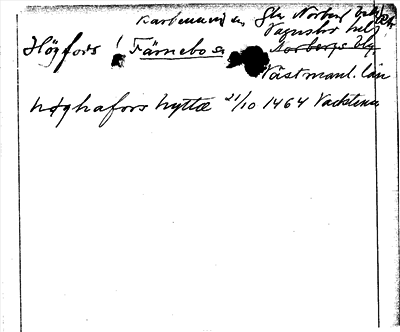 Karbennings sn Gla Norbergs
Vagnsbro hd
Högfors i Färnebo sn Norbergs blg
Västmanl. län
høghafors hyttæ 21/10 1464 Vadstena